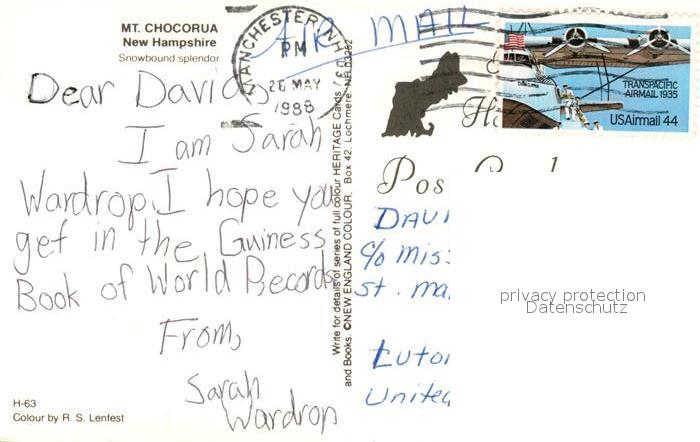 MT. CHOCORUA
New Hampshire
Snowbound splendor
Dear David,
I am Sarah
Wardrop. I hope you
get in the Guiness
Book of World Records
From,
Sarah
Wardrop
H-63
Colour by R. S. Lenfest
Write for details of series of full colour HERITAGE Cards
and Books. ©NEW ENGLAND COLOUR, Box 42, Lochmere, NH 03252
MANCHESTER, NH
PM
26 MAY
1988
AIR MAIL
TRANSPACIFIC
AIRMAIL 1935
USAirmail 44
Pos Card
DAVI
c/o Mis
St. Ma
Luto
United
privacy protection
Datenschutz